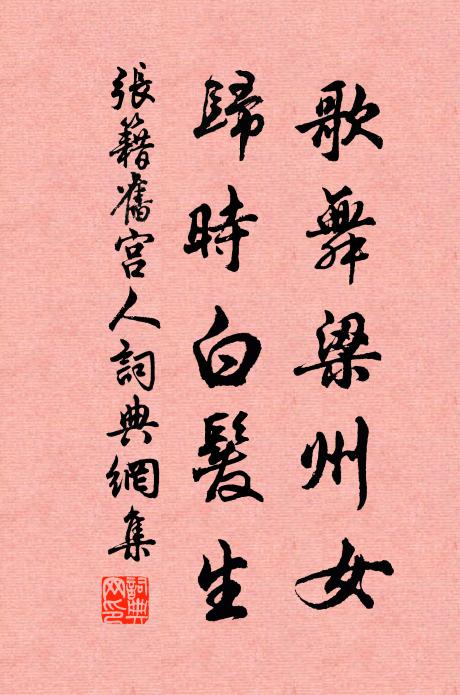 歌舞梁州女
歸時白髮生
張籍舊宮人詞典網集
詞典网印